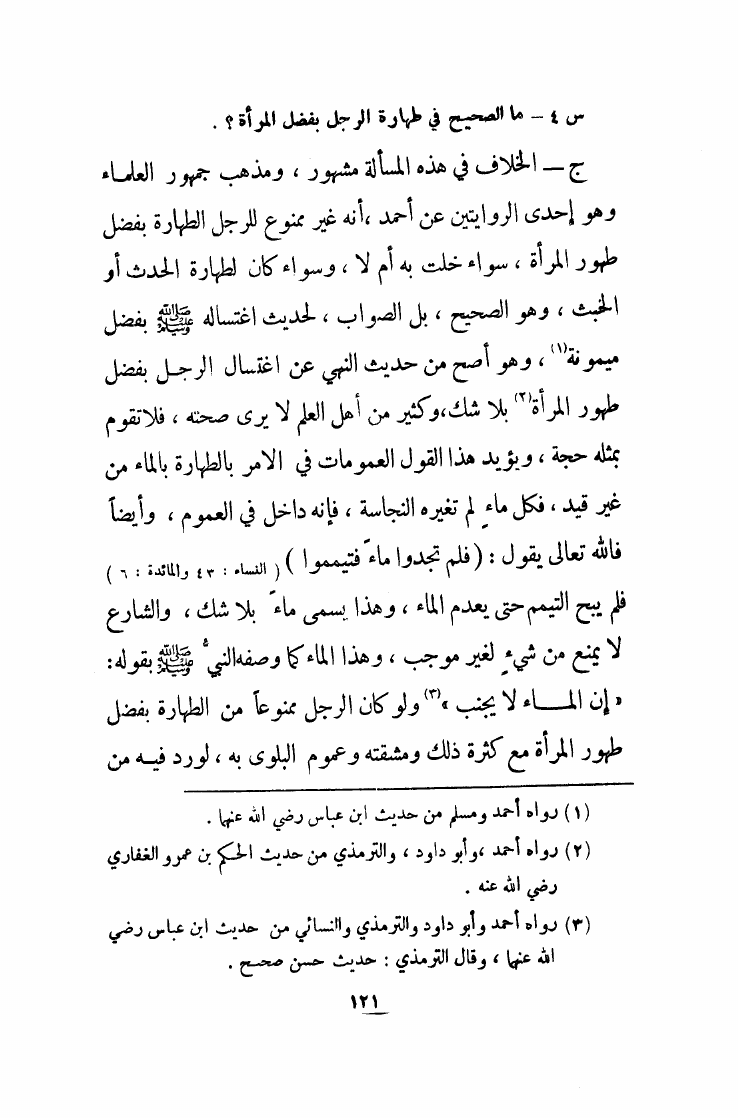 س ٤ – ما الصحيح في طهارة الرجل بفضل المرأة ؟ .
ج – الخلاف في هذه المسألة مشهور ، ومذهب جمهور العلماء
وهو إحدى الروايتين عن أحمد ،أنه غير ممنوع للرجل الطهارة بفضل
طهور المرأة ، سواء خلت به أم لا ، وسواء كان لطهارة الحدث أو
الخبث ، وهو الصحيح ، بل الصواب ، لحديث اغتساله ﷺ بفضل
ميمونة(١) ، وهو أصح من حديث النهي عن اغتسال الرجل بفضل
طهور المرأة(٢) بلا شك،وكثير من أهل العلم لا يرى صحته ، فلا تقوم
بمثله حجة ، ويؤيد هذا القول العمومات في الامر بالطهارة بالماء من
غير قيد ، فكل ماءٍ لم تغيره النجاسة ، فإنه داخل في العموم ، وأيضاً
فالله تعالى يقول : ( فلم تجدوا ماءً فتيمموا ) ( النساء : ٤٣ والمائدة : ٦ )
فلم يبح التيمم حتى يعدم الماء ، وهذا يسمى ماءً بلا شك ، والشارع
لا يمنع من شيءٍ لغير موجب ، وهذا الماء كما وصفه النبي ﷺ بقوله:
« إن المـــاء لا يجنب »(٣) ولو كان الرجل ممنوعاً من الطهارة بفضل
طهور المرأة مع كثرة ذلك ومشقته وعموم البلوى به ، لورد فيـه من
(١) رواه أحمد ومسلم من حديث ابن عباس رضي الله عنهما .
(٢) رواه أحمد ،وأبو داود ، والترمذي من حديث الحكم بن عمرو الغفاري
رضي الله عنه .
(٣) رواه أحمد وأبو داود والترمذي والنسائي من حديث ابن عباس رضي
الله عنهما ، وقال الترمذي : حديث حسن صحيح .
١٢١